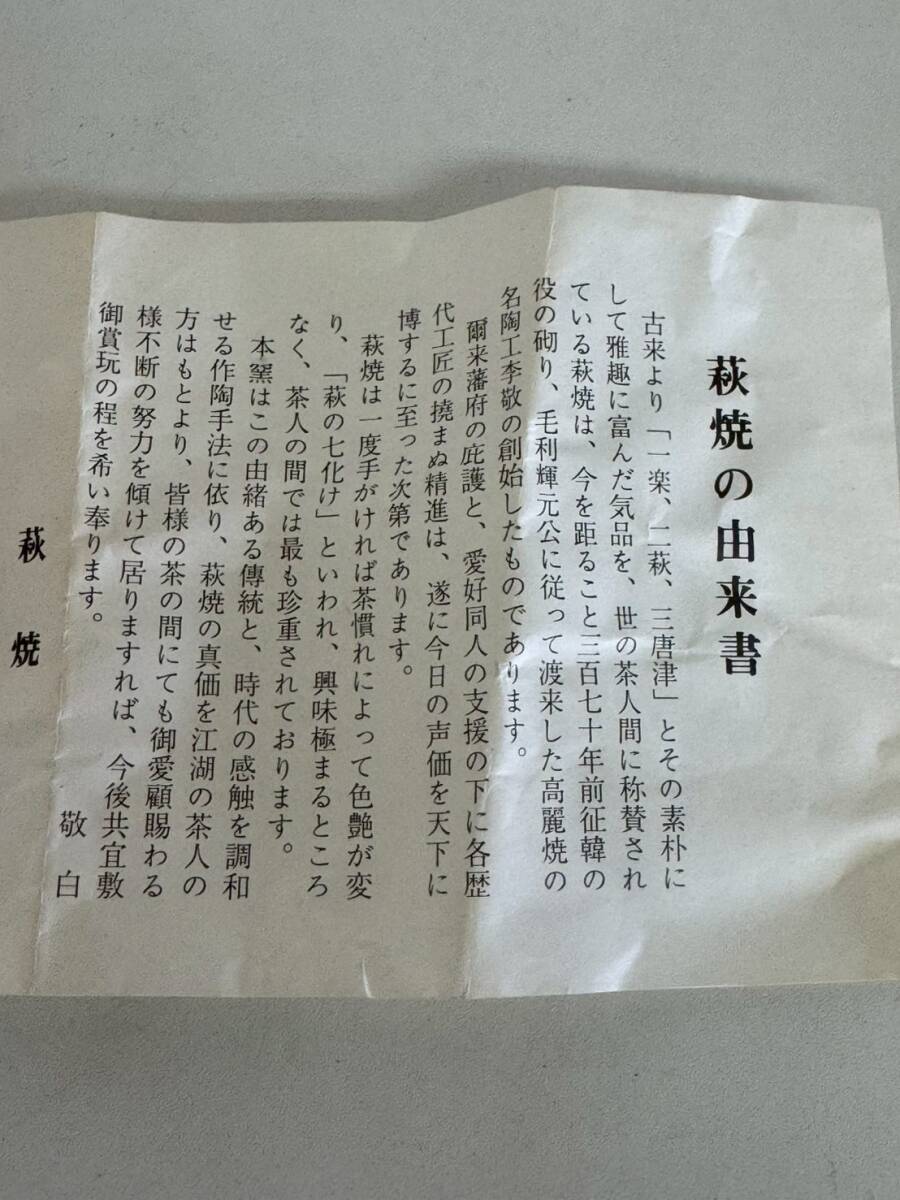 萩焼の由来書
古来より「一楽、二萩、三唐津」とその素朴に
して雅趣に富んだ気品を、世の茶人間に称賛され
ている萩焼は、今を距ること三百七十年前征韓の
役の砌り、毛利輝元公に従って渡来した高麗焼の
名陶工李敬の創始したものであります。
爾来藩府の庇護と、愛好同人の支援の下に各歴
代工匠の撓まぬ精進は、遂に今日の声価を天下に
博するに至った次第であります。
萩焼は一度手がければ茶慣れによって色艶が変
り、「萩の七化け」といわれ、興味極まるところ
なく、茶人の間では最も珍重されております。
本窯はこの由緒ある傳統と、時代の感触を調和
せる作陶手法に依り、萩焼の真価を江湖の茶人の
方はもとより、皆様の茶の間にても御愛顧賜わる
様不断の努力を傾けて居りますれば、今後共宜敷
御賞玩の程を希い奉ります。
敬白
萩焼